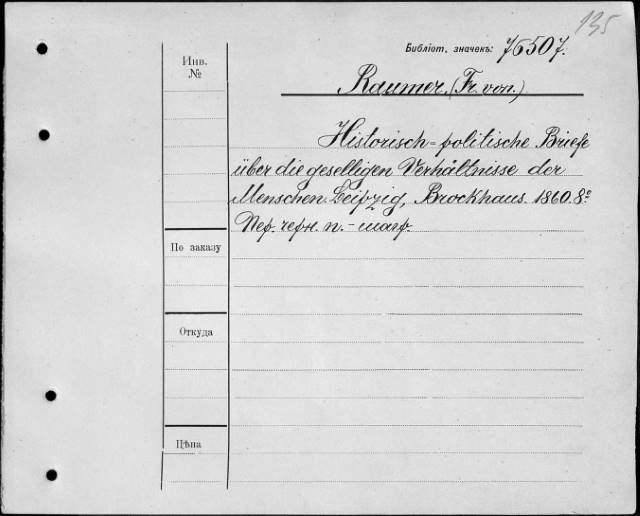 135
Библіот. значекъ: 76507.
Инв.
№
Raumer, (Fr. von.)
Historisch-politische Briefe
über die geselligen Verhältnisse der
Menschen. Leipzig, Brockhaus. 1860. 8º
Пер. черн. п.-шагр.
По заказу
Откуда
Цѣна